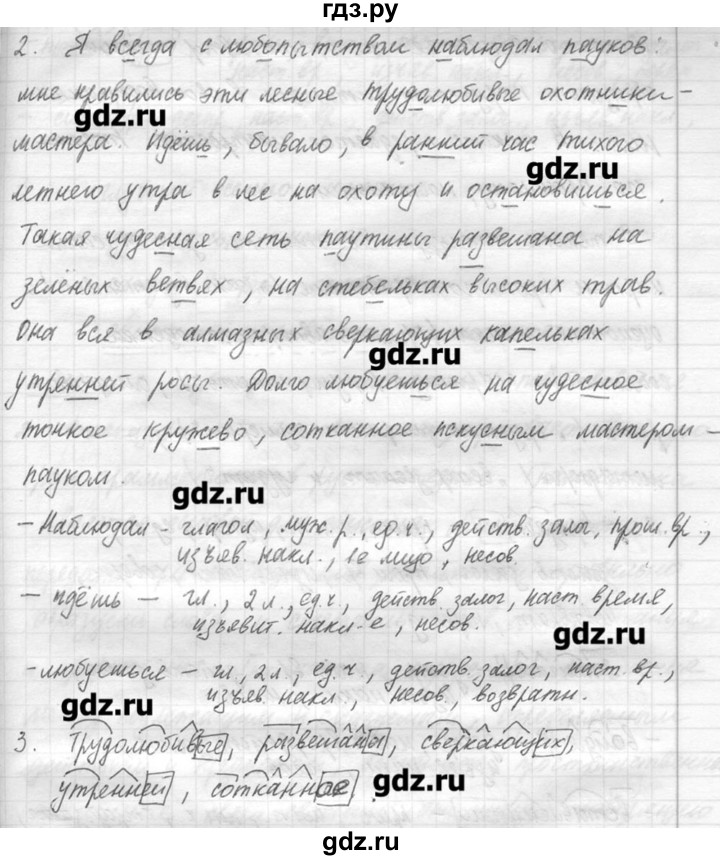 гдз.ру
2. Я всегда с любопытством наблюдал пауков:
мне нравились эти лесные трудолюбивые охотники -
gdz.ru
мастера. Идёшь, бывало, в ранний час тихого
gdz.ru
летнего утра в лес на охоту и остановишься.
Такая чудесная сеть паутины развешана на
зелёных ветвях, на стебельках высоких трав.
Она вся в алмазных сверкающих капельках
gdz.ru
утренней росы. Долго любуешься на чудесное
тонкое кружево, сотканное искусным мастером -
пауком.
gdz.ru
- Наблюдал - глагол, муж. р., ед. ч., действ. залог, прош. вр.,
изъяв. накл., 1е лицо, несов.
- идёшь - гл., 2 л., ед. ч., действ. залог, наст. время,
изъявит. накл-е, несов.
gdz.ru
- любуешься - гл., 2 л., ед. ч., действ. залог, наст. вр.,
изъяв. накл., несов., возвратн.
gdz.ru
3. Трудолюбивые, развешаны, сверкающих,
утренней, сотканное.
gdz.ru
gdz.ru